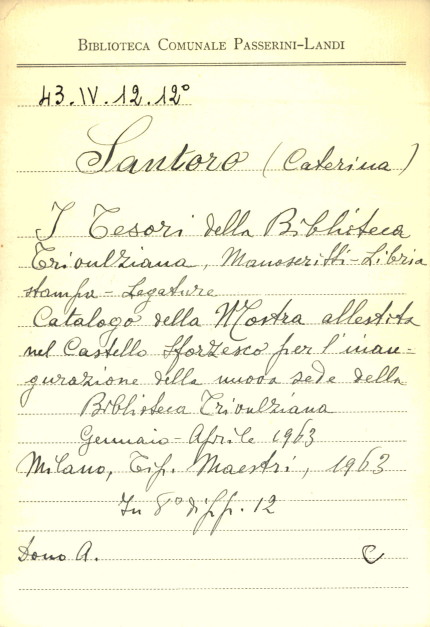 BIBLIOTECA COMUNALE PASSERINI-LANDI
43.IV.12.12°
Santoro (Caterina)
I Tesori della Biblioteca
Trivulziana, Manoscritti-Libri a
stampa - Legature
Catalogo della Mostra allestita
nel Castello Sforzesco per l'inau-
gurazione della nuova sede della
Biblioteca Trivulziana
Gennaio-Aprile 1963
Milano, Tip. Maestri, 1963
In 8° di pp. 12
Dono A.
C